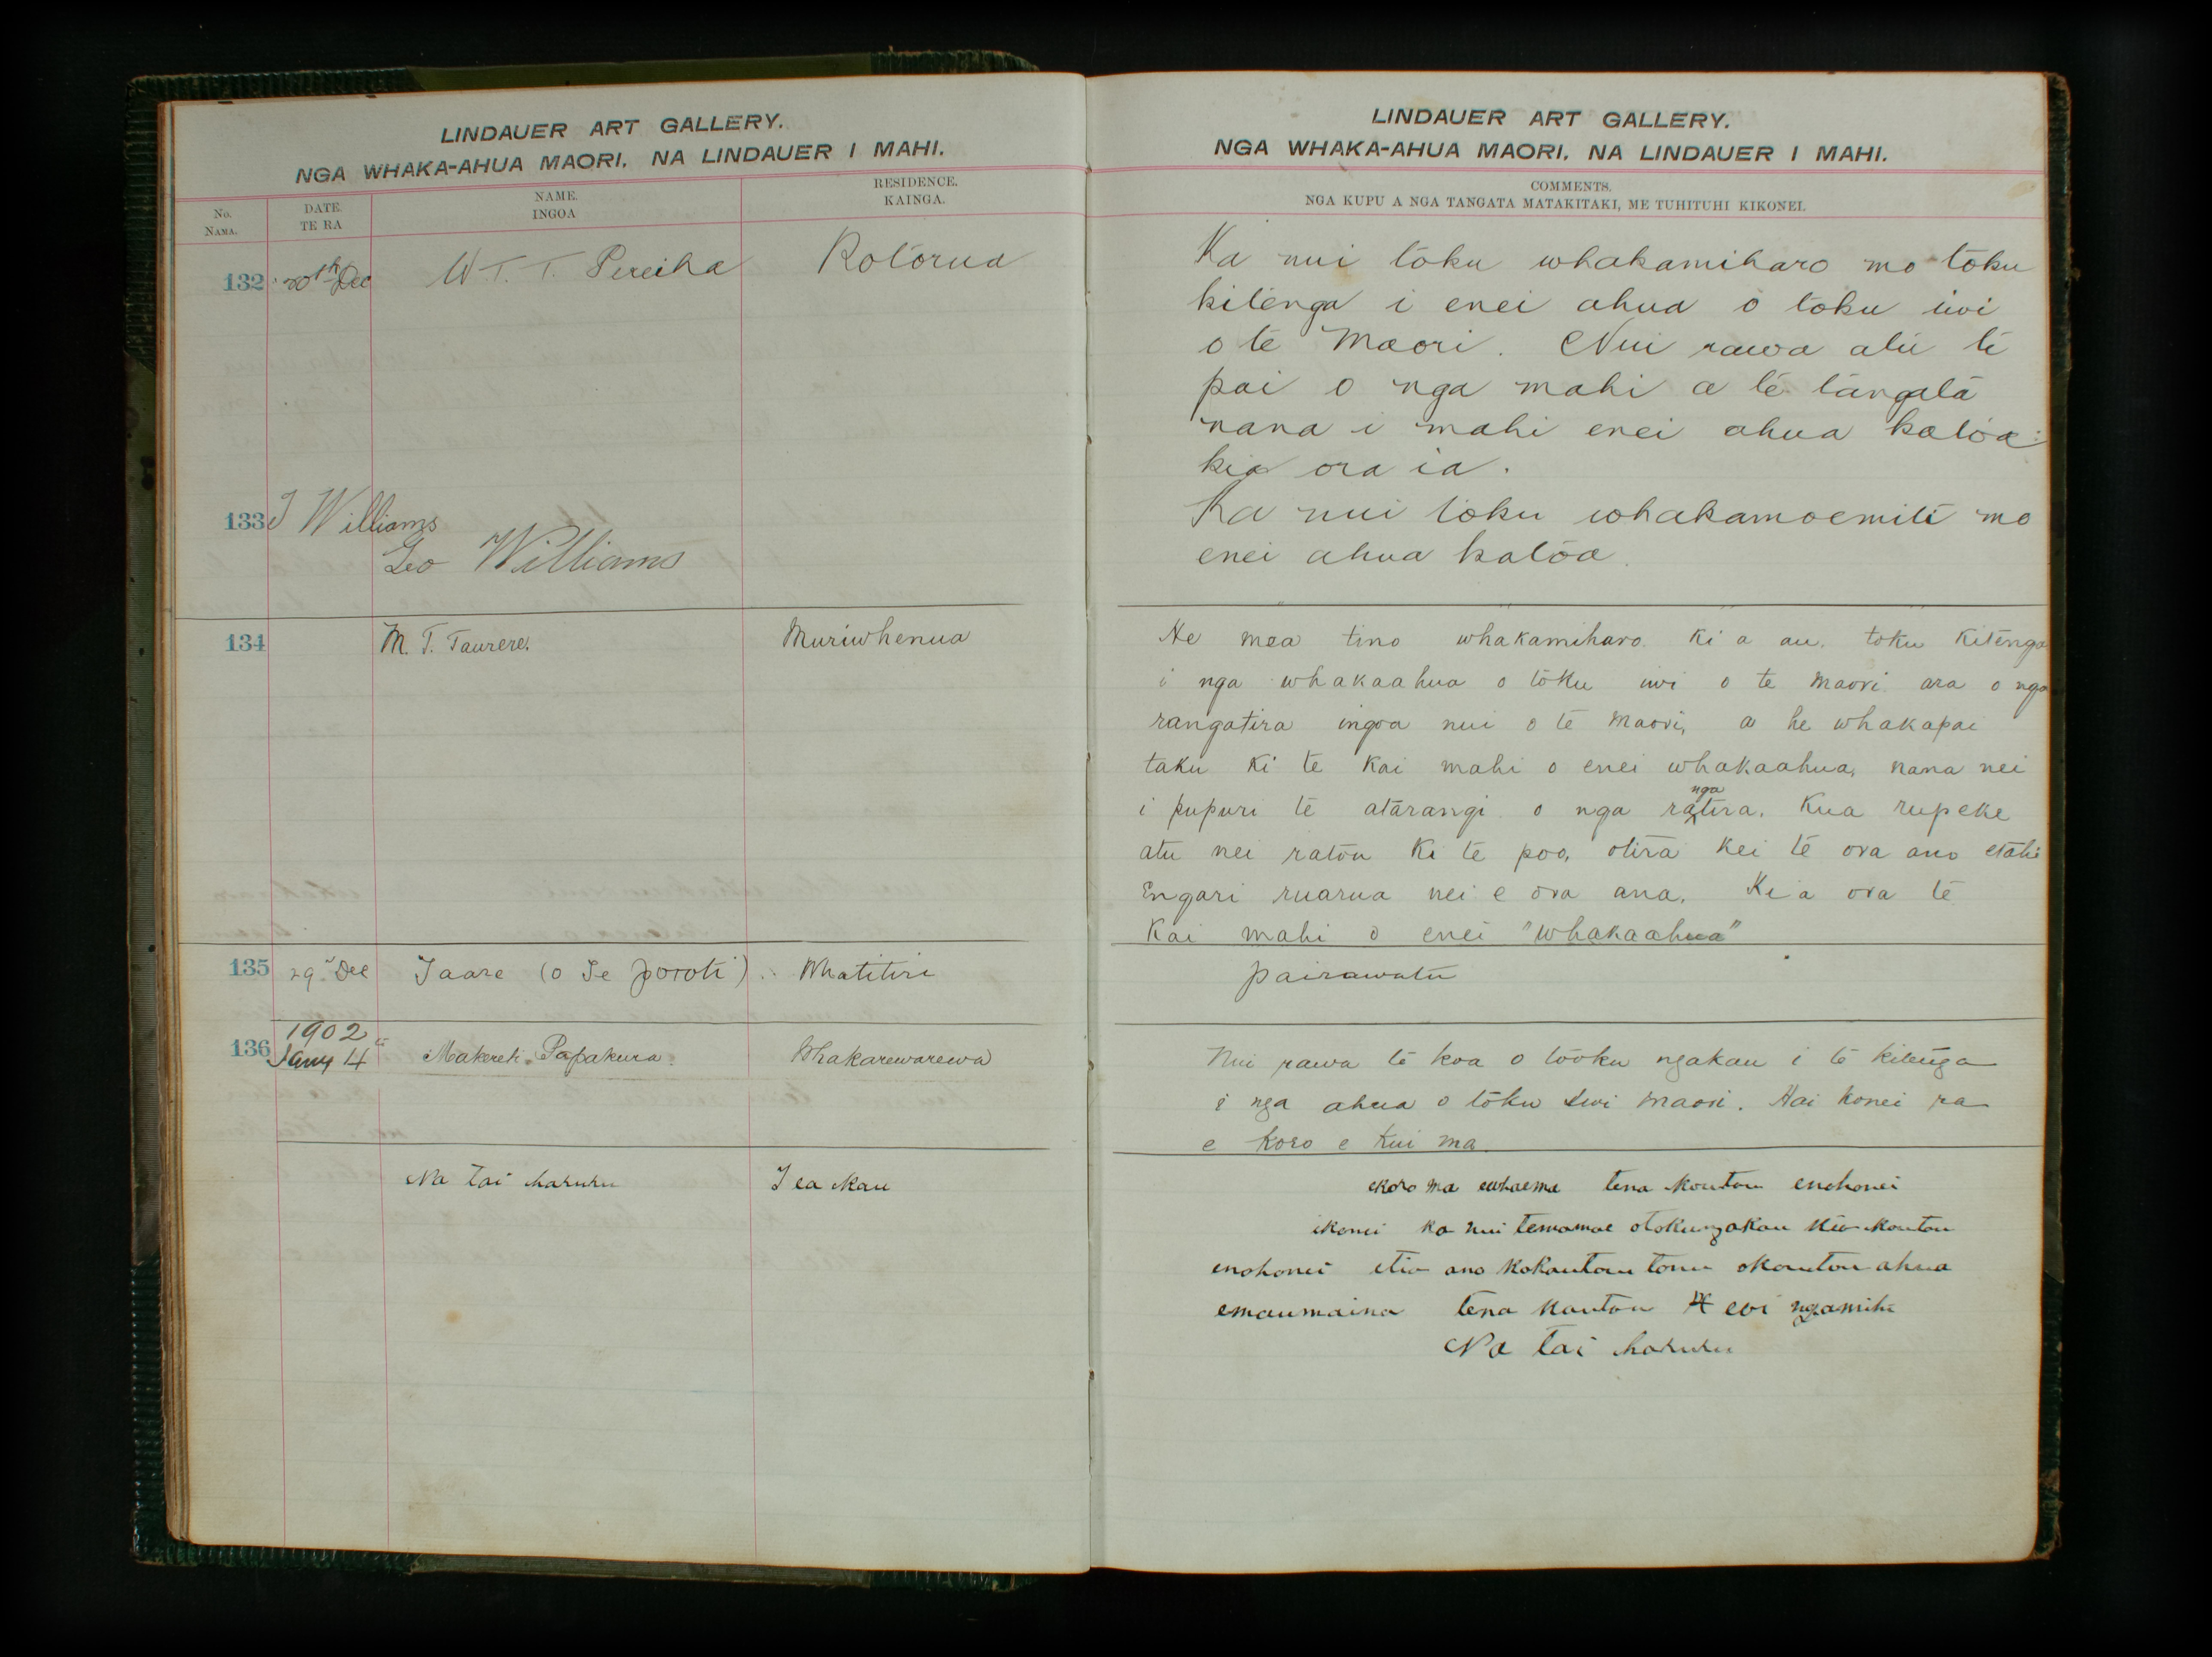 LINDAUER ART GALLERY.
NGA WHAKA-AHUA MAORI. NA LINDAUER I MAHI.
No. NAMA.
DATE. TE RA
NAME. INGOA
RESIDENCE. KAINGA.
132 20th Dec W. T. T. Pereiha Rotorua
133 J Williams
Geo Williams
134 M. T. Taurere. Muriwhenua
135 29" Dec Taare (o Te Poroti) Whatitiri
1902
136 Jany 4" Makereti Papakura. Whakarewarewa
Na Tai haruru Te a Kau
LINDAUER ART GALLERY.
NGA WHAKA-AHUA MAORI. NA LINDAUER I MAHI.
COMMENTS.
NGA KUPU A NGA TANGATA MATAKITAKI, ME TUHITUHI KIKONEI.
Ka nui toku whakamiharo mo toku
kitenga i enei ahua o toku iwi
o te Maori. Nui rawa atu te
pai o nga mahi a te tangata
nana i mahi enei ahua katoa:
kia ora ia.
Ka nui toku whakamoemiti mo
enei ahua katoa.
He mea tino whakamiharo. ki a au. toku kitenga
i nga whakaahua o toku iwi o te maori ara o nga
rangatira ingoa nui o te maori, a he whakapai
taku ki te kai mahi o enei whakaahua, nana nei
i pupuri te atarangi o nga rangatira. Kua rupeke
atu nei ratou ki te poo, otira kei te ora ano etahi
Engari ruarua nei e ora ana. Kia ora te
Kai mahi o enei "whakaahua"
pairawatu
Nui rawa te koa o tooku ngakau i te kitenga
i nga ahua o toku Iwi maori. Hai konei ra
e koro e kui ma.
ekoro ma ewhaema tena koutou enohonei
ikonei ka nui temamae otokungakau kia koutou
enohonei etia ano kokoutou tonu okoutou ahua
emaumaina tena koutou eoi ngamihi
Na Tai haruru